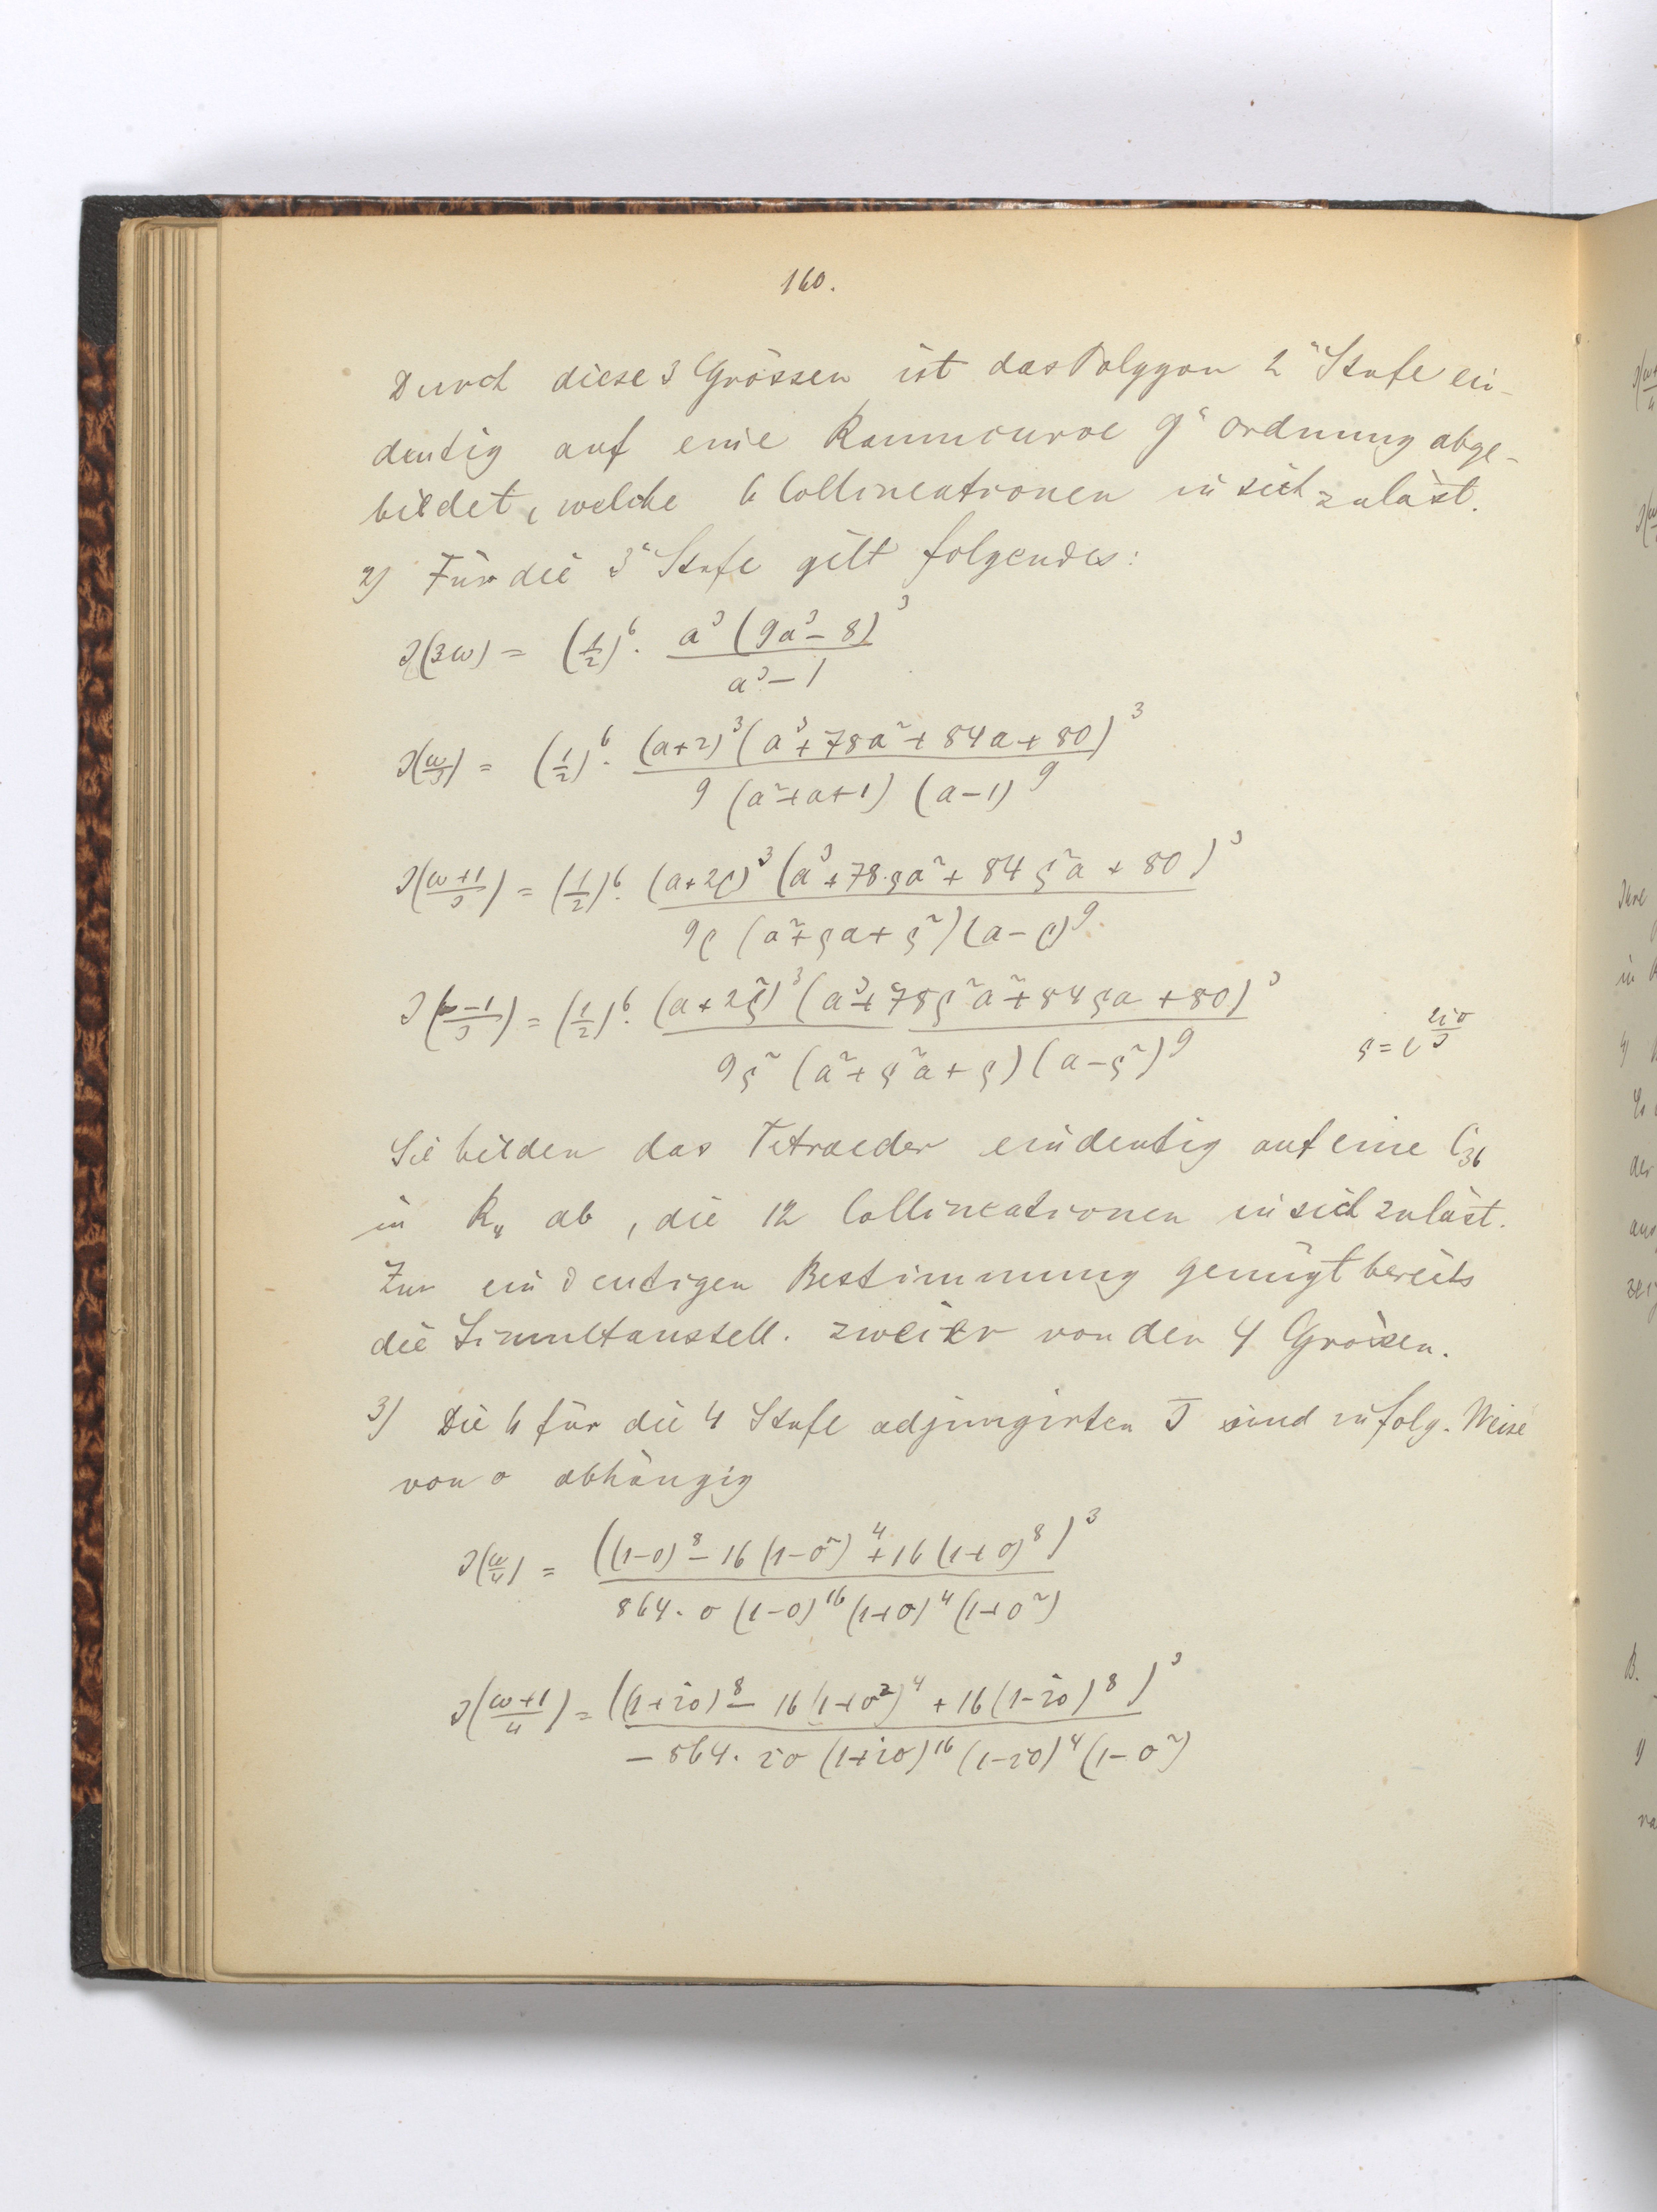 160.
Durch diese 3 Grössen ist das Polygon 2ͤʳ Stufe ein-
deutig auf eine Raumcurve 9ͤʳ Ordnung abge-
bildet, welche 6 Collineationen in sich zuläst.
2) Für die 3ͤ Stufe gilt folgendes:
J(3ω) = (1/2)⁶ · a³(9a³ – 8)³ / (a³ – 1)
J(ω/3) = (1/2)⁶ · (a+2)³(a³+78a²+84a+80)³ / 9(a²+a+1)(a–1)⁹
J((ω+1)/3) = (1/2)⁶ · (a+2ρ)³(a³+78·ρa²+84ρ²a+80)³ / 9ρ(a²+ρa+ρ²)(a–ρ)⁹
J((ω–1)/3) = (1/2)⁶ · (a+2ρ²)³(a³+78ρ²a²+84ρa+80)³ / 9ρ²(a²+ρ²a+ρ)(a–ρ²)⁹
ρ = e^(2iπ/3)
Sie bilden das Tetraeder eindeutig auf eine C₃₆
in R₄ ab, die 12 Collineationen in sich zuläst.
Zur eindeutigen Bestimmung genügt bereits
die Simultanstell. zweier von den 4 Grössen.
3) Die 6 für die 4 Stufe adjungirten J sind in folg. Weise
von σ abhängig
J(ω/4) = ((1–σ)⁸ – 16(1–σ²)⁴ + 16(1+σ)⁸)³ / 864·σ(1–σ)¹⁶(1+σ)⁴(1+σ²)
J((ω+1)/4) = ((1+iσ)⁸ – 16(1+σ²)⁴ + 16(1–iσ)⁸)³ / –864·iσ(1+iσ)¹⁶(1–iσ)⁴(1–σ²)